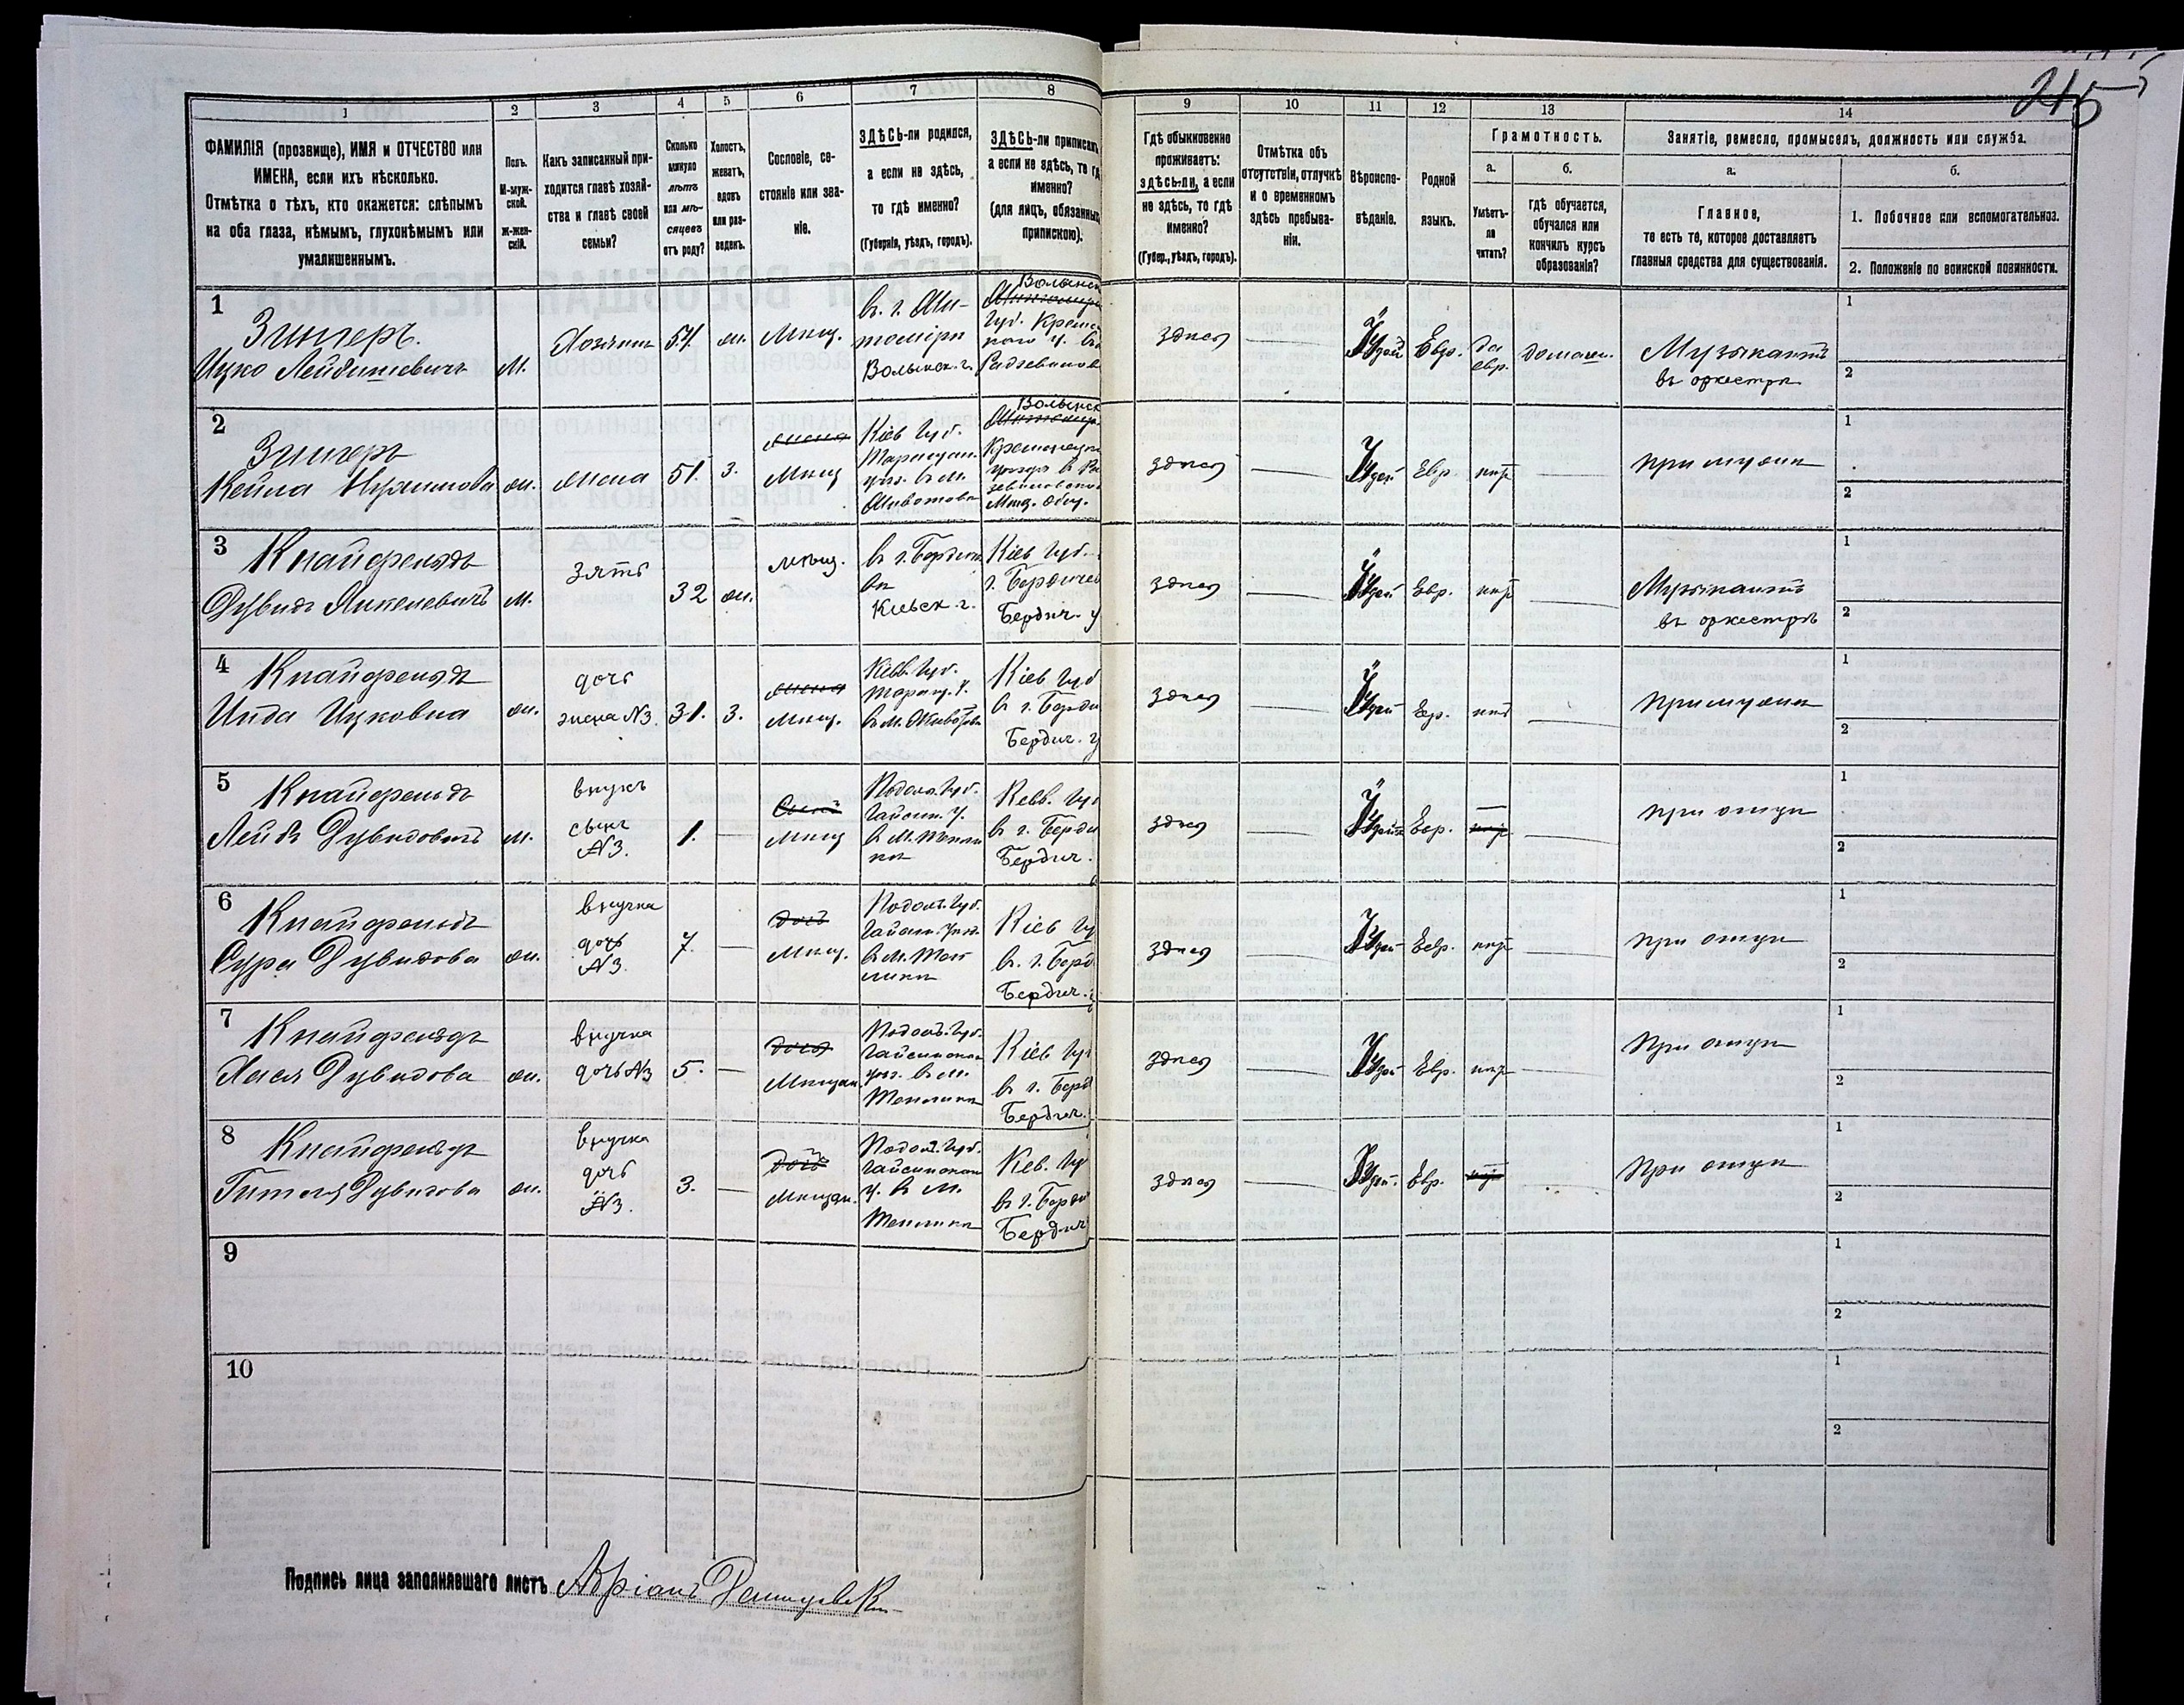 215
1
2
3
4
5
6
7
8
9
10
11
12
13
14
ФАМИЛІЯ (прозвище), ИМЯ и ОТЧЕСТВО или
ИМЕНА, если ихъ нѣсколько.
Отмѣтка о тѣхъ, кто окажется: слѣпымъ
на оба глаза, нѣмымъ, глухонѣмымъ или
умалишеннымъ.
Полъ.
М-муж-
ской.
Ж-жен-
скій.
Какъ записанный при-
ходится главѣ хозяй-
ства и главѣ своей
семьи?
Сколько
минуло
лѣтъ
или мѣ-
сяцевъ
отъ роду?
Холостъ,
женатъ,
вдовъ
или раз-
веденъ.
Сословіе, со-
стояніе или зва-
ніе.
ЗДѢСЬ-ли родился,
а если не здѣсь,
то гдѣ именно?
(Губернія, уѣздъ, городъ).
ЗДѢСЬ-ли приписанъ
а если не здѣсь, то гд
именно?
(для лицъ, обязанныхъ
припискою).
Гдѣ обыкновенно
проживаетъ:
здѣсь-ли, а если
не здѣсь, то гдѣ
именно?
(Губер., уѣздъ, городъ).
Отмѣтка объ
отсутствіи, отлучкѣ
и о временномъ
здѣсь пребыва-
ніи.
Вѣроиспо-
вѣданіе.
Родной
языкъ.
Грамотность.
а.
Умѣетъ-
ли
читать?
б.
гдѣ обучается,
обучался или
кончилъ курсъ
образованія?
Занятіе, ремесло, промыселъ, должность или служба.
а.
Главное,
то есть то, которое доставляетъ
главныя средства для существованія.
б.
1. Побочное или вспомогательное.
2. Положеніе по воинской повинности.
1
Зингеръ.
Ицко Лейдишевичъ
М.
Хозяинъ
54.
ж.
Мѣщ.
въ г. Жи-
томірѣ
Волынск. г.
Волынск
Губ. Кремен
здѣсь
Іудей
Евр.
да
евр.
домашн.
Музыкантъ
въ оркестрѣ
1
2
2
Зингеръ
Кейла
ж.
жена
51.
з.
жена
Мѣщ
Кіев Губ.
Таращан.
уѣз. въ м.
Животовѣ
Волынск
Кременецк
Мѣщ. Общ.
здѣсь
Іудей
Евр.
нѣт
при мужѣ
1
2
3
Кнайфельдъ
Дувидъ Янкелевичъ
М.
зять
32
ж.
мѣщ.
въ г. Бердиче
вѣ
Кіевск. г.
Кіев Губ.
г. Бердичев
Бердич. у
здѣсь
Іудей
Евр.
нѣт
Музыкантъ
въ оркестрѣ
1
2
4
Кнайфельдъ
Инда Ицковна
ж.
дочь
жена №3.
31.
з.
жена
Мѣщ.
Кіев. Губ.
Таращ. У.
въ м. Животовѣ
Кіев Губ
въ г. Берди
Бердич. у
здѣсь
Іудей
Евр.
нѣт
при мужѣ
1
2
5
Кнайфельдъ
Лейбъ Дувидовичъ
М.
внукъ
сынъ
№3.
1.
Сынъ
Мѣщ
Подол. Губ.
Гайсин. У.
въ м. Тепли
кѣ
Кіев. Губ
въ г. Берди
Бердич.
здѣсь
Іудей
Евр.
нѣт
при отцѣ
1
2
6
Кнайфельдъ
Сура Дувидова
ж.
внучка
дочь
№3.
7.
дочь
Мѣщ.
Подол. Губ.
Гайсин. уѣз.
въ м. Теп
ликѣ
Кіев Гу
въ г. Берд
Бердич.
здѣсь
Іудей
Евр.
нѣт
при отцѣ
1
2
7
Кнайфельдъ
Хася Дувидова
ж.
внучка
дочь №3
5.
дочь
Мѣщан.
Подол. Губ.
Гайсинскаго
уѣз. въ м.
Тепликѣ
Кіев Гу
въ г. Берд
Бердич.
здѣсь
Іудей
Евр.
нѣт
при отцѣ
1
2
8
Кнайфельдъ
Гителя Дувидова
ж.
внучка
дочь
№3.
3.
дочь
Мѣщан.
Подол. Губ.
Гайсинскаго
у. въ м.
Тепликѣ
Кіев. Гу
въ г. Берди
Бердич
здѣсь
Іудей.
Евр.
нѣт
при отцѣ
1
2
9
1
2
10
1
2
Подпись лица заполнявшаго листъ Адріанъ